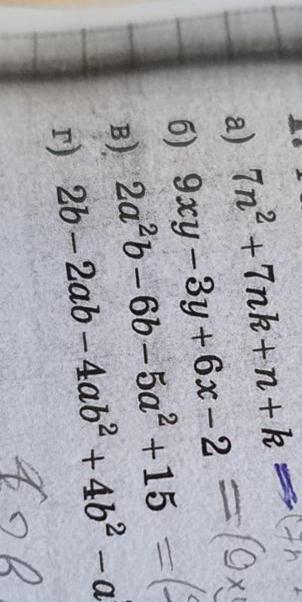 1.
а) 7n² + 7nk + n + k = (7n
б) 9xy − 3y + 6x − 2 = (9xy
в) 2a²b − 6b − 5a² + 15 = (
г) 2b − 2ab − 4ab² + 4b² − a